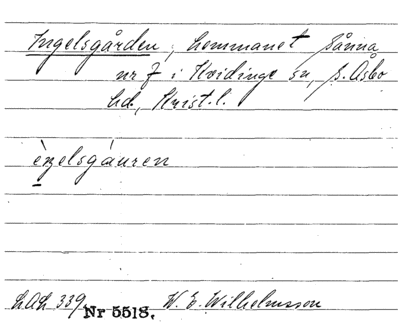 Ingelsgården, hemmanet Sånna
nr 7 i Kvidinge sn, S. Åsbo
hd, Krist. l.
èŋelsgáuren
LAL 339. Nr 5518. W. E. Wilhelmsson